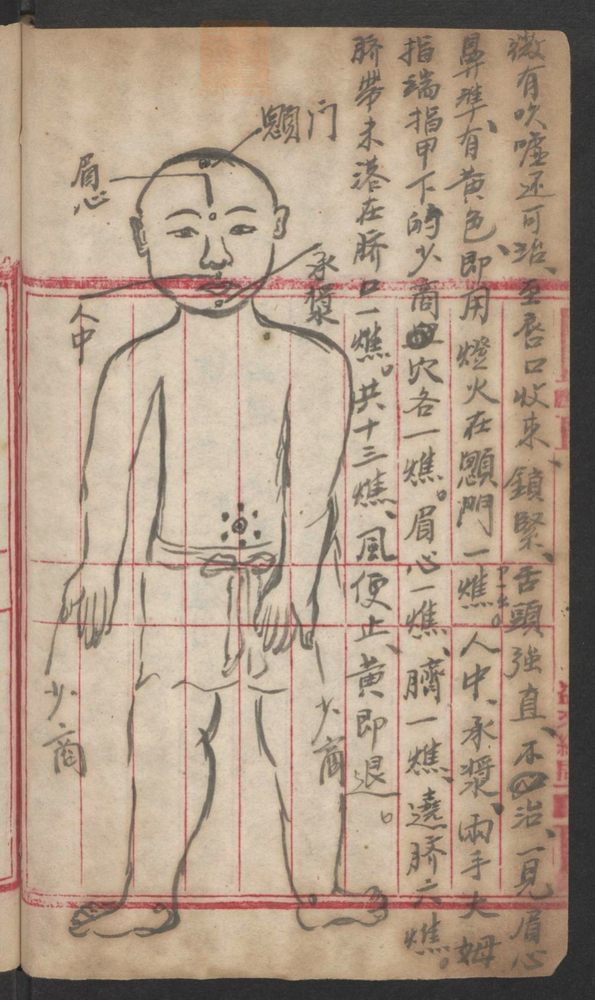 微有吹噓还可治、至唇口收来、鎖緊、舌頭強直、不必治、一見眉心
鼻準、有黄色、即用燈火在顖門一燋。人中、承漿、両手大姆
指端指甲下的少商穴各一燋。眉心一燋、臍一燋、遶脐六燋。
脐帶未落在脐口一燋。共十三燋、風便止、黄即退。
顖门
眉心
承漿
人中
少商
少商